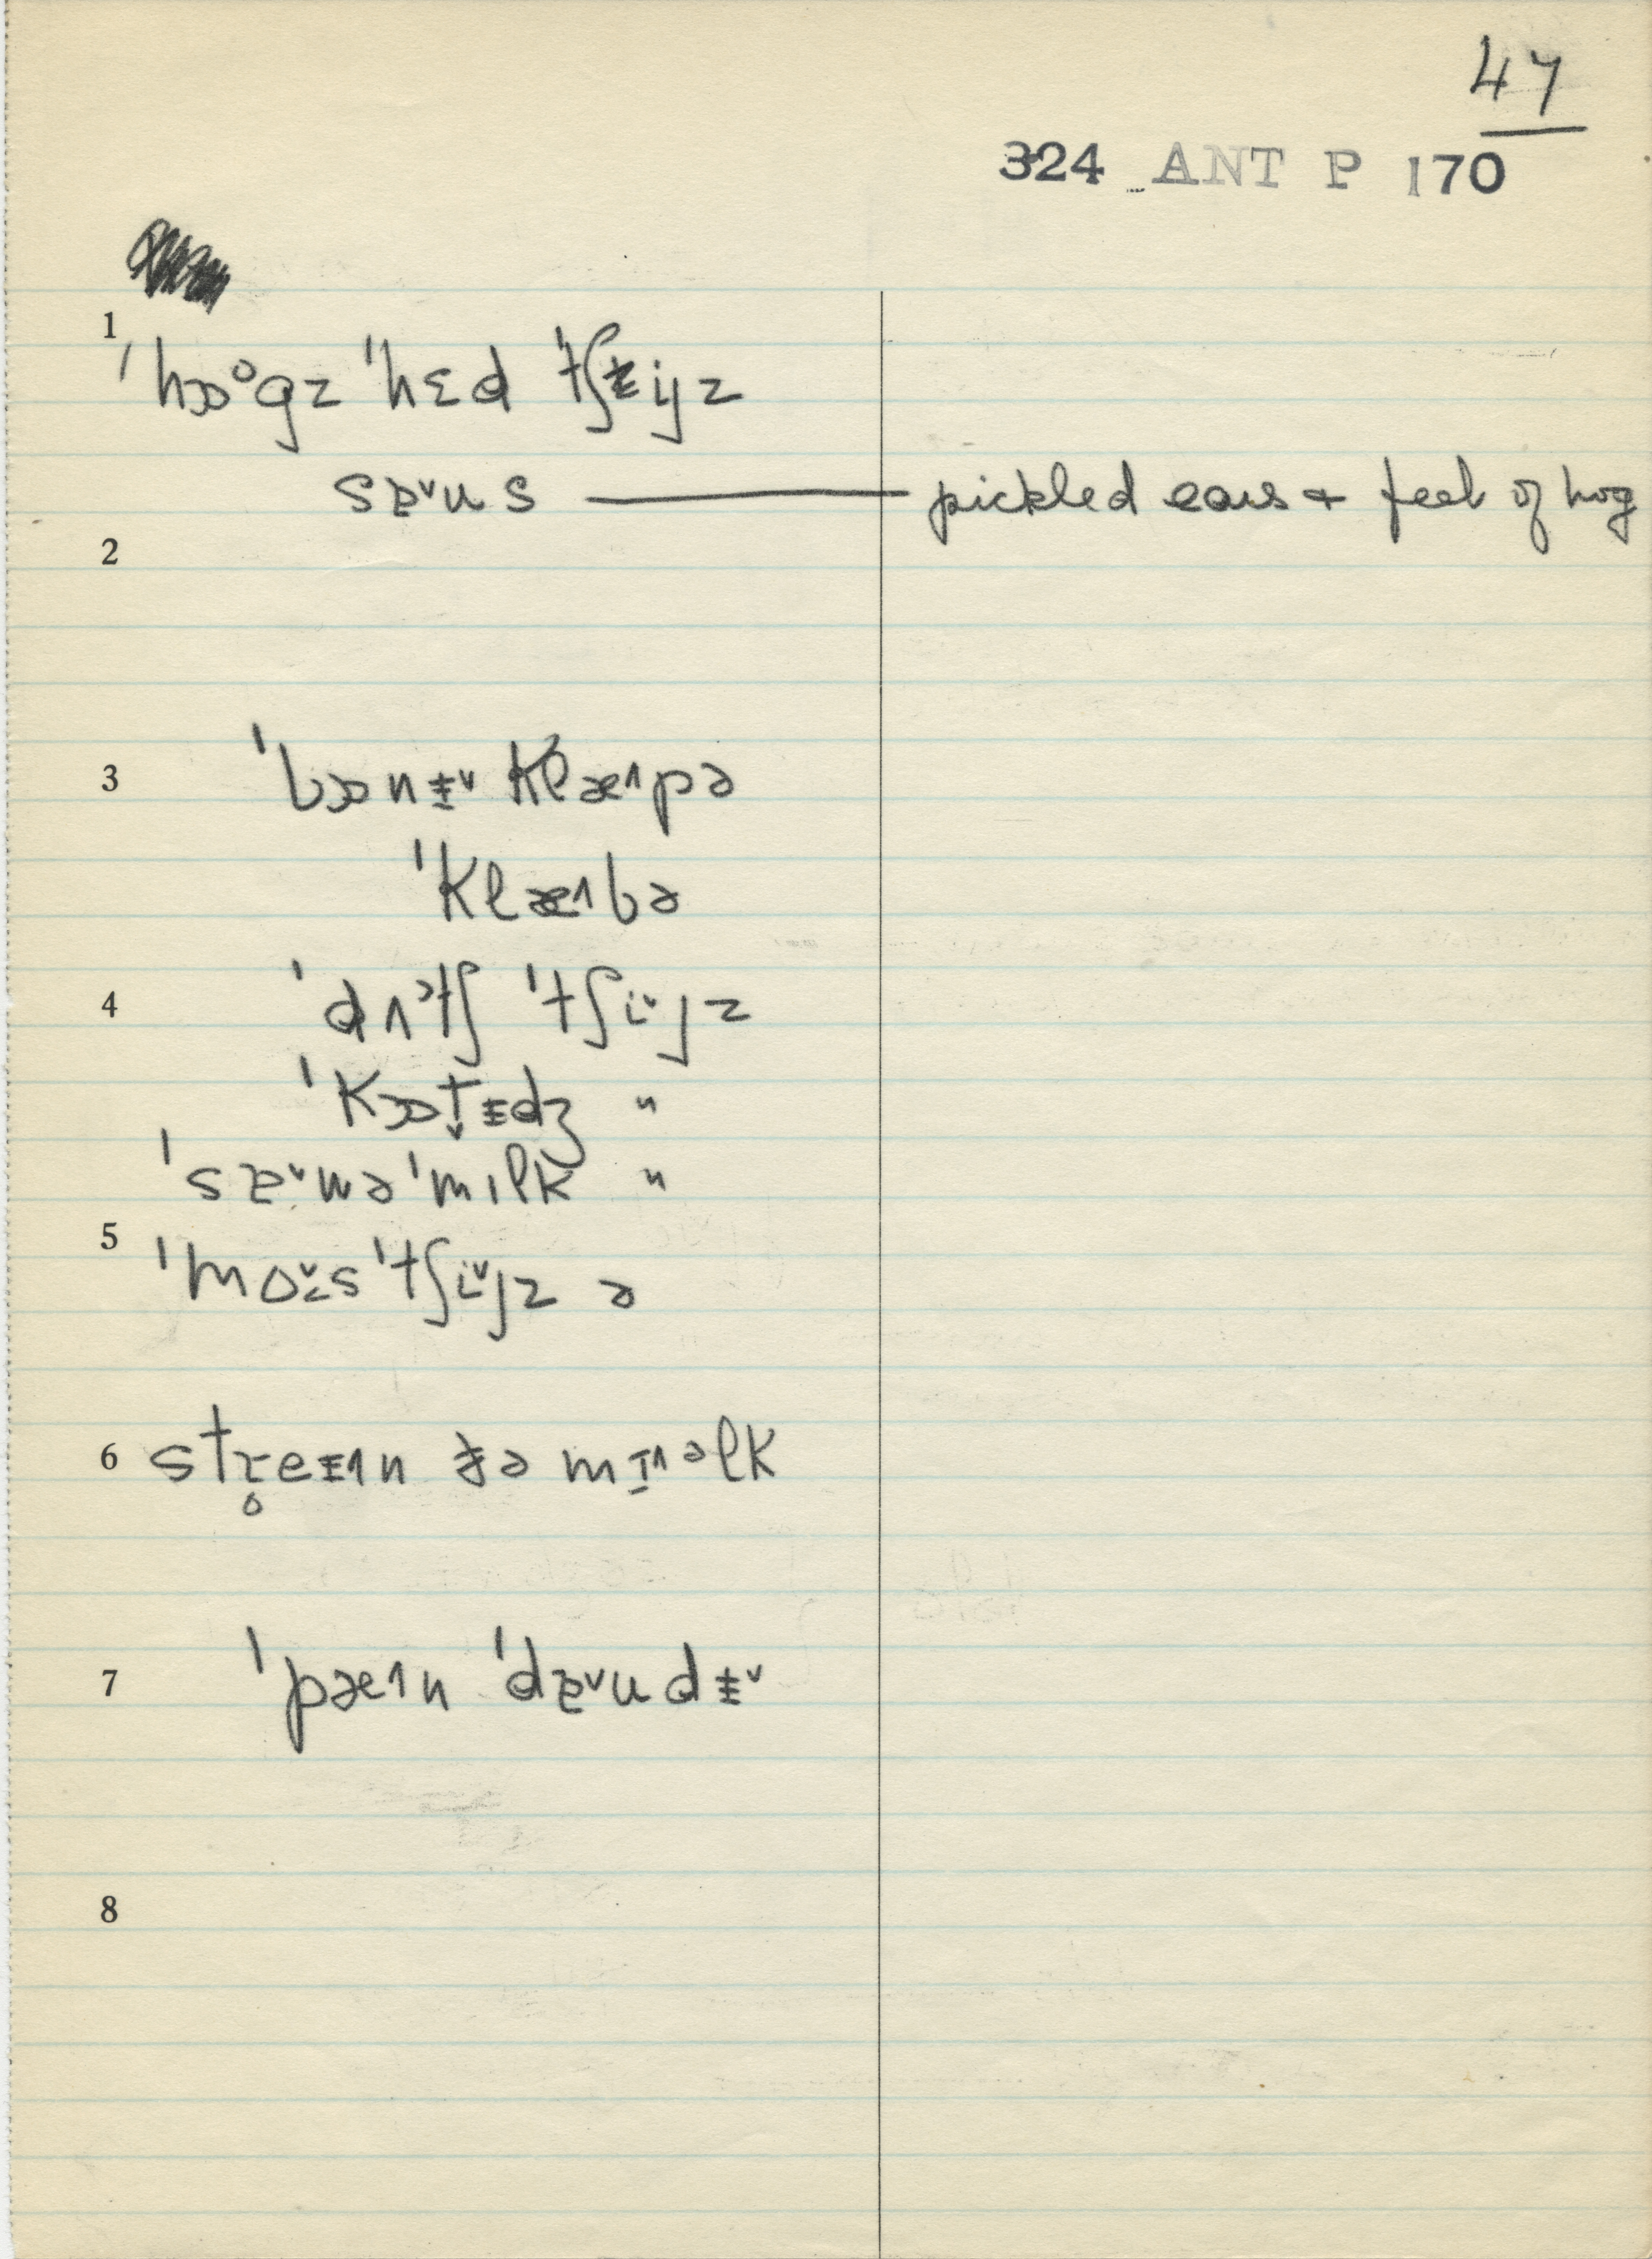 47
324 ANT P 170
1
ˈhɔᵒgz ˈhɛd ˈtʃijz
sɐ˅us — pickled ears & feet of hog
2
3
ˈbɔnɨ˅ klæ˄pə
ˈklæ˄bə
4
ˈdʌᵊtʃ ˈtʃi˅jz
ˈkɔt̬ɨdʒ "
ˈsɐ˅wə ˈmɪlk "
5
ˈmɒi˅s ˈtʃi˅jz ə
6 str̥eɨ˄n ðə mɪ˄ᵊlk
7 ˈpæ˄n ˈdɐ˅udɨ˅
8